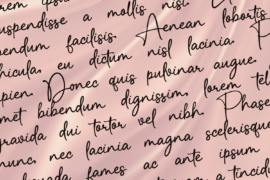 rem ipsum
uspendisse a mollis nisi.
bendum facilisis. Aenean lobortis
hicula, eu dictum nisl lacinia. P
pien. Donec quis pulvinar augue.
met bibendum dignissim. lorem tel
gravida dui tortor vel nibh. Phase
nunc, nec lacinia magna scelerisque
suada fames ac ante ipsum
a tincid